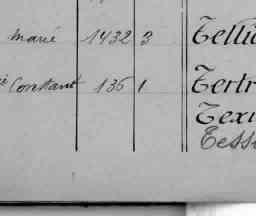 marié 1432 3 Tellie
Constant 135 1 Tertr
Texi
Tessi